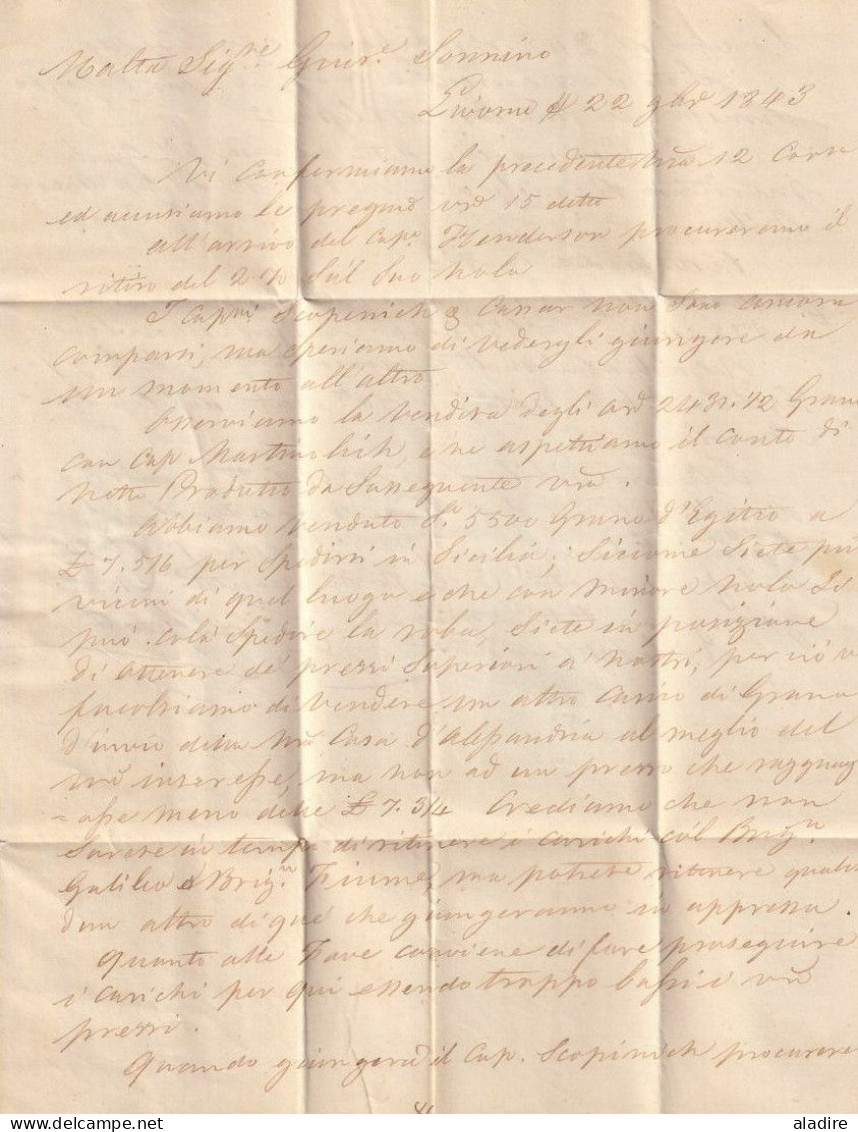 Malta Sig.re Gius.e Sonnino
Livorno 22 9bre 1843
Vi confermiamo la precedente nra 12 corr
ed accusiamo le pregiate vre 15 detto
All'arrivo del Cap. Henderson procureremo il
ritiro del 2 % sul suo nolo
I Cap.ni Scopinich & Cassar non sono ancora
comparsi, ma speriamo di vedergli giungere da
un momento all'altro
Osserviamo la vendita degli Ard. 2431.1/2 Grano
con Cap. Martinolich, e ne aspettiamo il conto di
Netto Prodotto da susseguente vra.
Abbiamo venduto Sa. 5500 Grano d'Egitto a
£ 7. 5/6 per spedirsi in Sicilia; siccome siete più
vicini di quel luogo e che con minore nolo si
può colà spedire la roba, siete in posizione
di ottenere de' prezzi superiori a' nostri, perciò v
facoltiamo di vendere un altro carico di Grano
d'invio della nra Casa d'Alessandria al meglio del
nro interesse, ma non ad un prezzo che raggua
=asse meno delle £ 7. 3/4 Crediamo che non
sarete in tempo di ritenere i carichi col Brig.n
Galileo & Brig.n Fiume, ma potrete ritenere qualc
dun altro di què che giungeranno in appresso.
Quanto alle Fave conviene di fare proseguire
i carichi per qui essendo troppo bassi i vri
prezzi.
Quando giungerà il Cap. Scopinich procurere
aladire